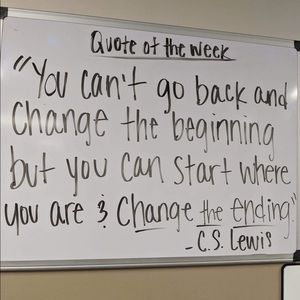 Quote of the week
"You can't go back and
change the beginning
but you can start where
you are & Change the ending."
- C.S. Lewis